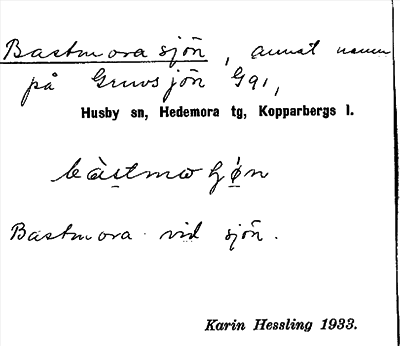 Bastmorasjön, annat namn
på Gruvsjön G91,
Husby sn, Hedemora tg, Kopparbergs l.
Bastmora vid sjön.
Karin Hessling 1933.